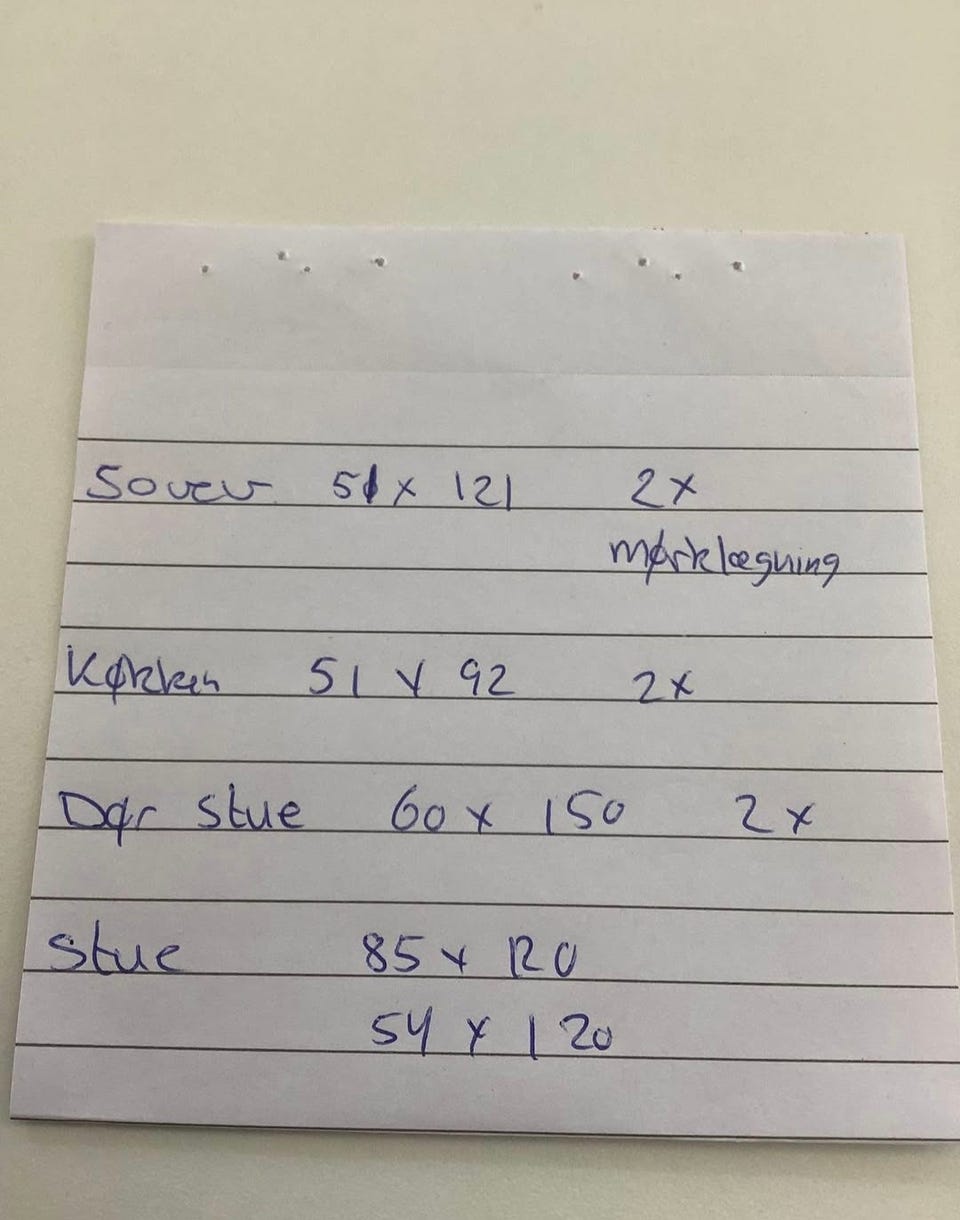 Sovev 51 x 121 2x
mørklægning
Køkken 51 x 92 2x
Dør stue 60 x 150 2x
Stue 85 x 120
54 x 120